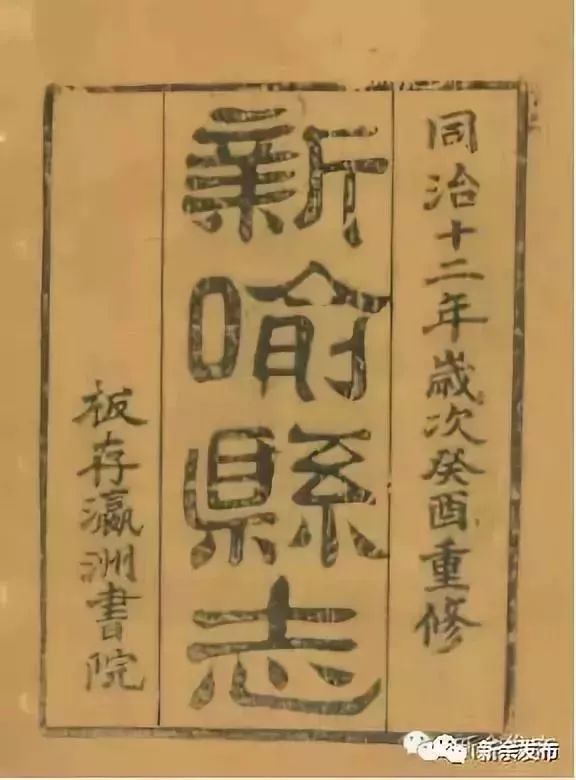 同治十二年歲次癸酉重修
新喻縣志
板存瀛洲書院
新余发布